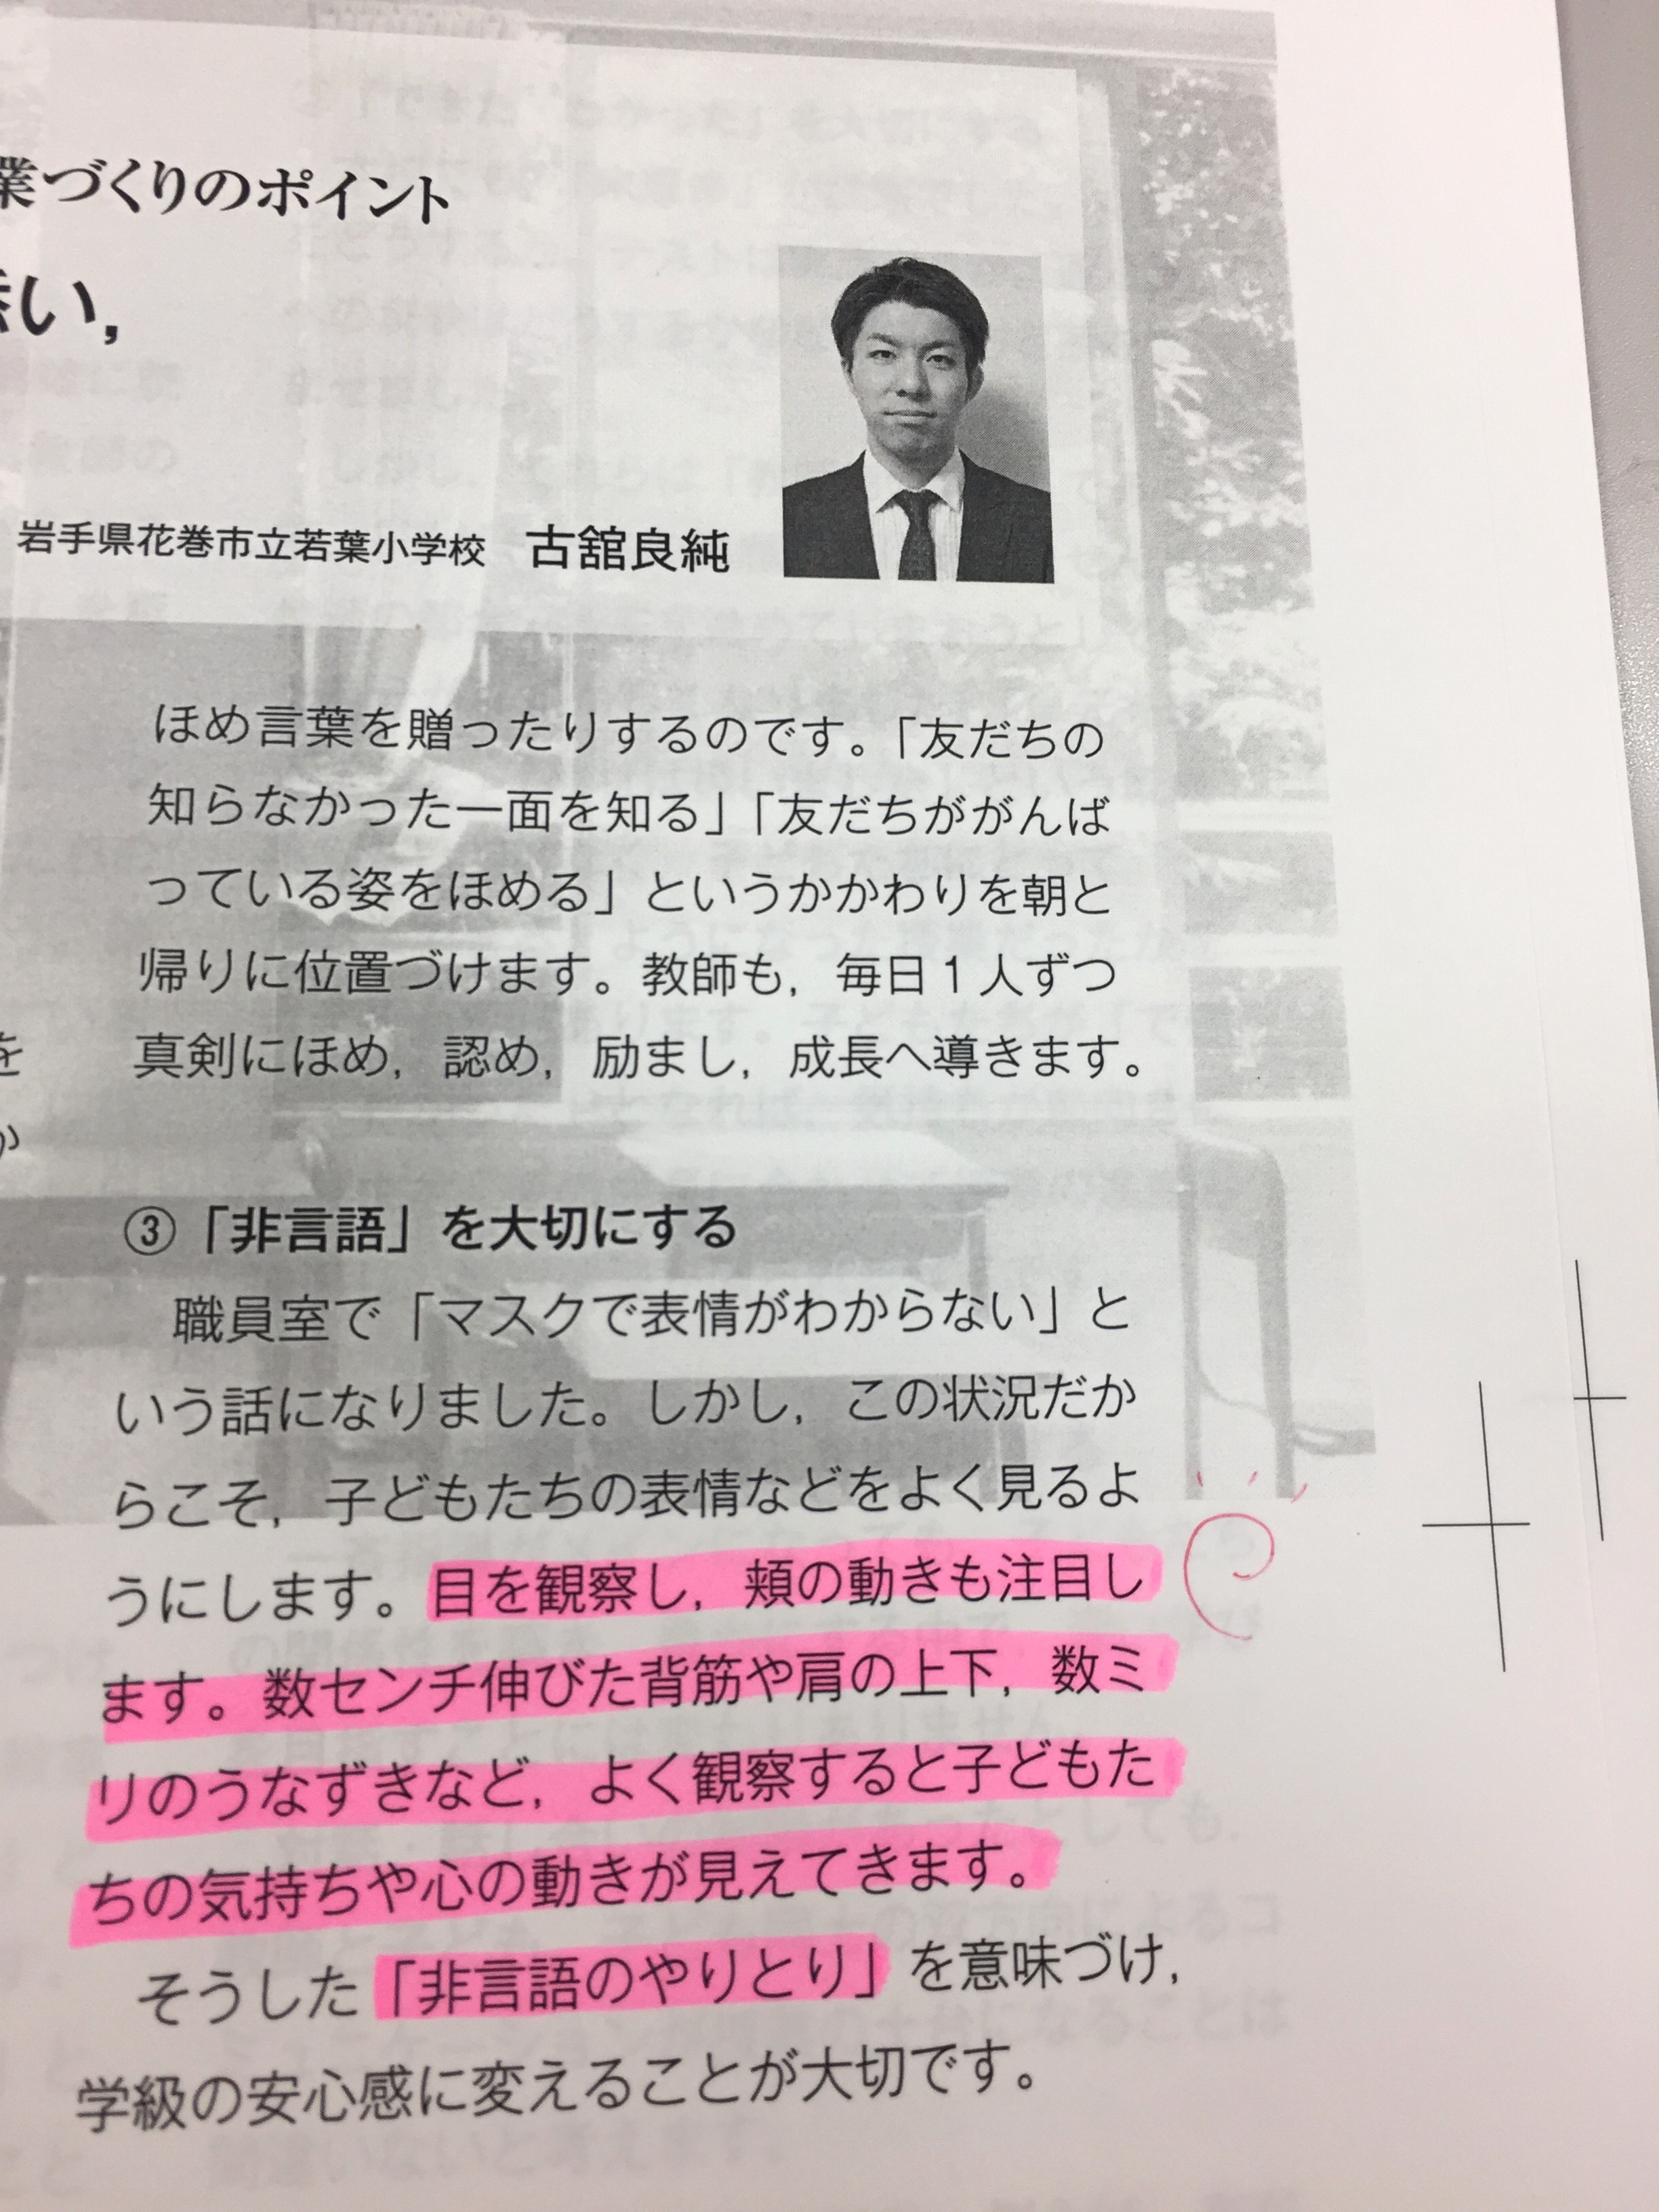 業づくりのポイント
い,
岩手県花巻市立若葉小学校 古舘良純
ほめ言葉を贈ったりするのです。「友だちの
知らなかった一面を知る」「友だちががんば
っている姿をほめる」というかかわりを朝と
帰りに位置づけます。教師も，毎日1人ずつ
真剣にほめ，認め，励まし，成長へ導きます。
を
か
③「非言語」を大切にする
職員室で「マスクで表情がわからない」と
いう話になりました。しかし，この状況だか
らこそ，子どもたちの表情などをよく見るよ
うにします。目を観察し，頬の動きも注目し
ます。数センチ伸びた背筋や肩の上下，数ミ
リのうなずきなど，よく観察すると子どもた
ちの気持ちや心の動きが見えてきます。
そうした「非言語のやりとり」を意味づけ，
学級の安心感に変えることが大切です。